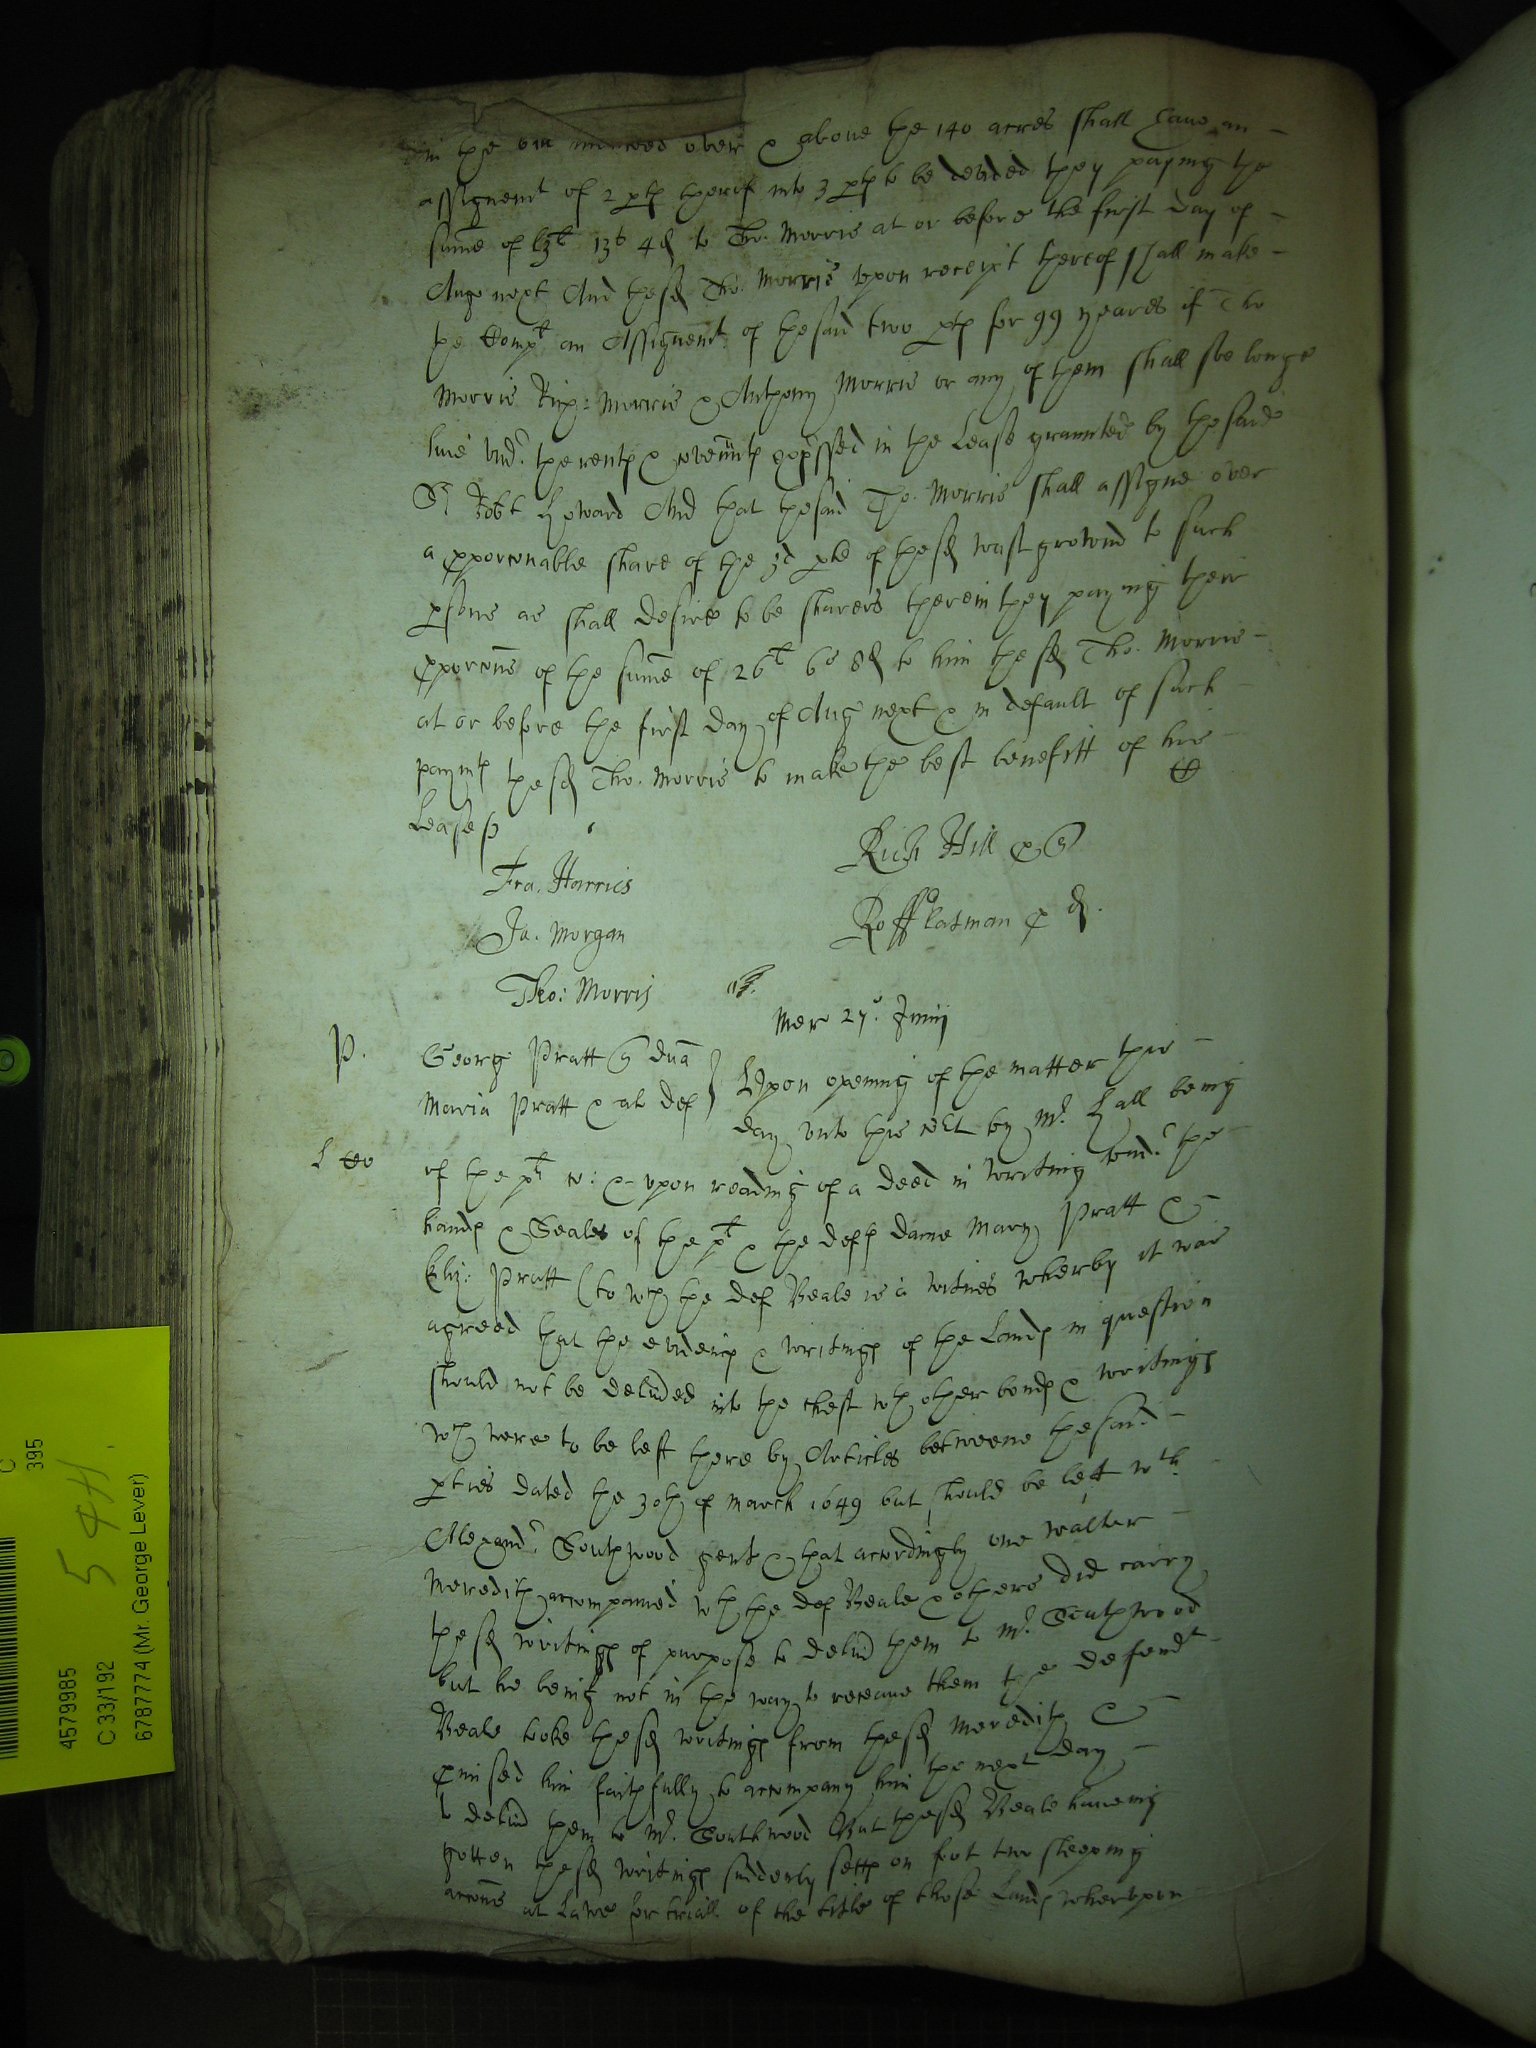 in the over & above the 140 acres shall have an
assignemt of 2 pts therof into 3 pts to be devided they paying the
sume of 13s 4d to Tho. Morris at or before the first day of
Aug next And the sd Tho. Morris upon receipt thereof shall make
the Compt an Assignemt of the said two pts for 99 yeares if Tho
Morris Morris & Anthony Morris or any of them shall soe longe
live und. the rents & covennts expssed in the Lease graunted by the said
Sr Robt Howard And that the said Tho. Morris shall assigne over
a pporconable share of the 3d pte of the sd wast ground to such
psons as shall desire to be sharers therein they paying their
pporcons of the sume of 26l 6s 8d to him the sd Tho. Morris
at or before the first day of Aug next & in default of such
paymts the sd Tho. Morris to make the best benefitt of his
Lease
Rich Hill
Fra. Harries
Ja. Morgan
Tho: Morris
Mer 27o Junij
P.
Georg Pratt
Maria Pratt & al def
Upon opening of the matter this
day unto this Ct by Mr Hall being
of the plt c: & upon reading of a deed in writing und. the
hands & Seales of the plt & the defts dame Mary Pratt &
Eliz: Pratt (to wch the def Beale is a witnes wherby it was
agreed that the evidencs & writings of the Lands in question
should not be delived into the chest wth other bonds & writings
wch were to be left there by Articles betweene the said
pties dated the 30th of March 1649 but should be left wth
Alexand. Southwood gent & that accordingly one Walter
Meredith accompanied wth the def Beale & others did carry
the sd writings of purpose to delivr them to Mr Southwood
but he being not in the way to receave them the defendt
Beale tooke the sd writings from the sd Meredith &
pmised him faithfully to accompany him the next day
to delivr them to Mr. Southwood But the sd Beale haveing
gotten the sd writings suddenly setts on foot two sleeping
accons at Lawe for triall of the title of those Lands wherupon
C
395
54H
4579985
C 33/192
6787774 (Mr. George Lever)